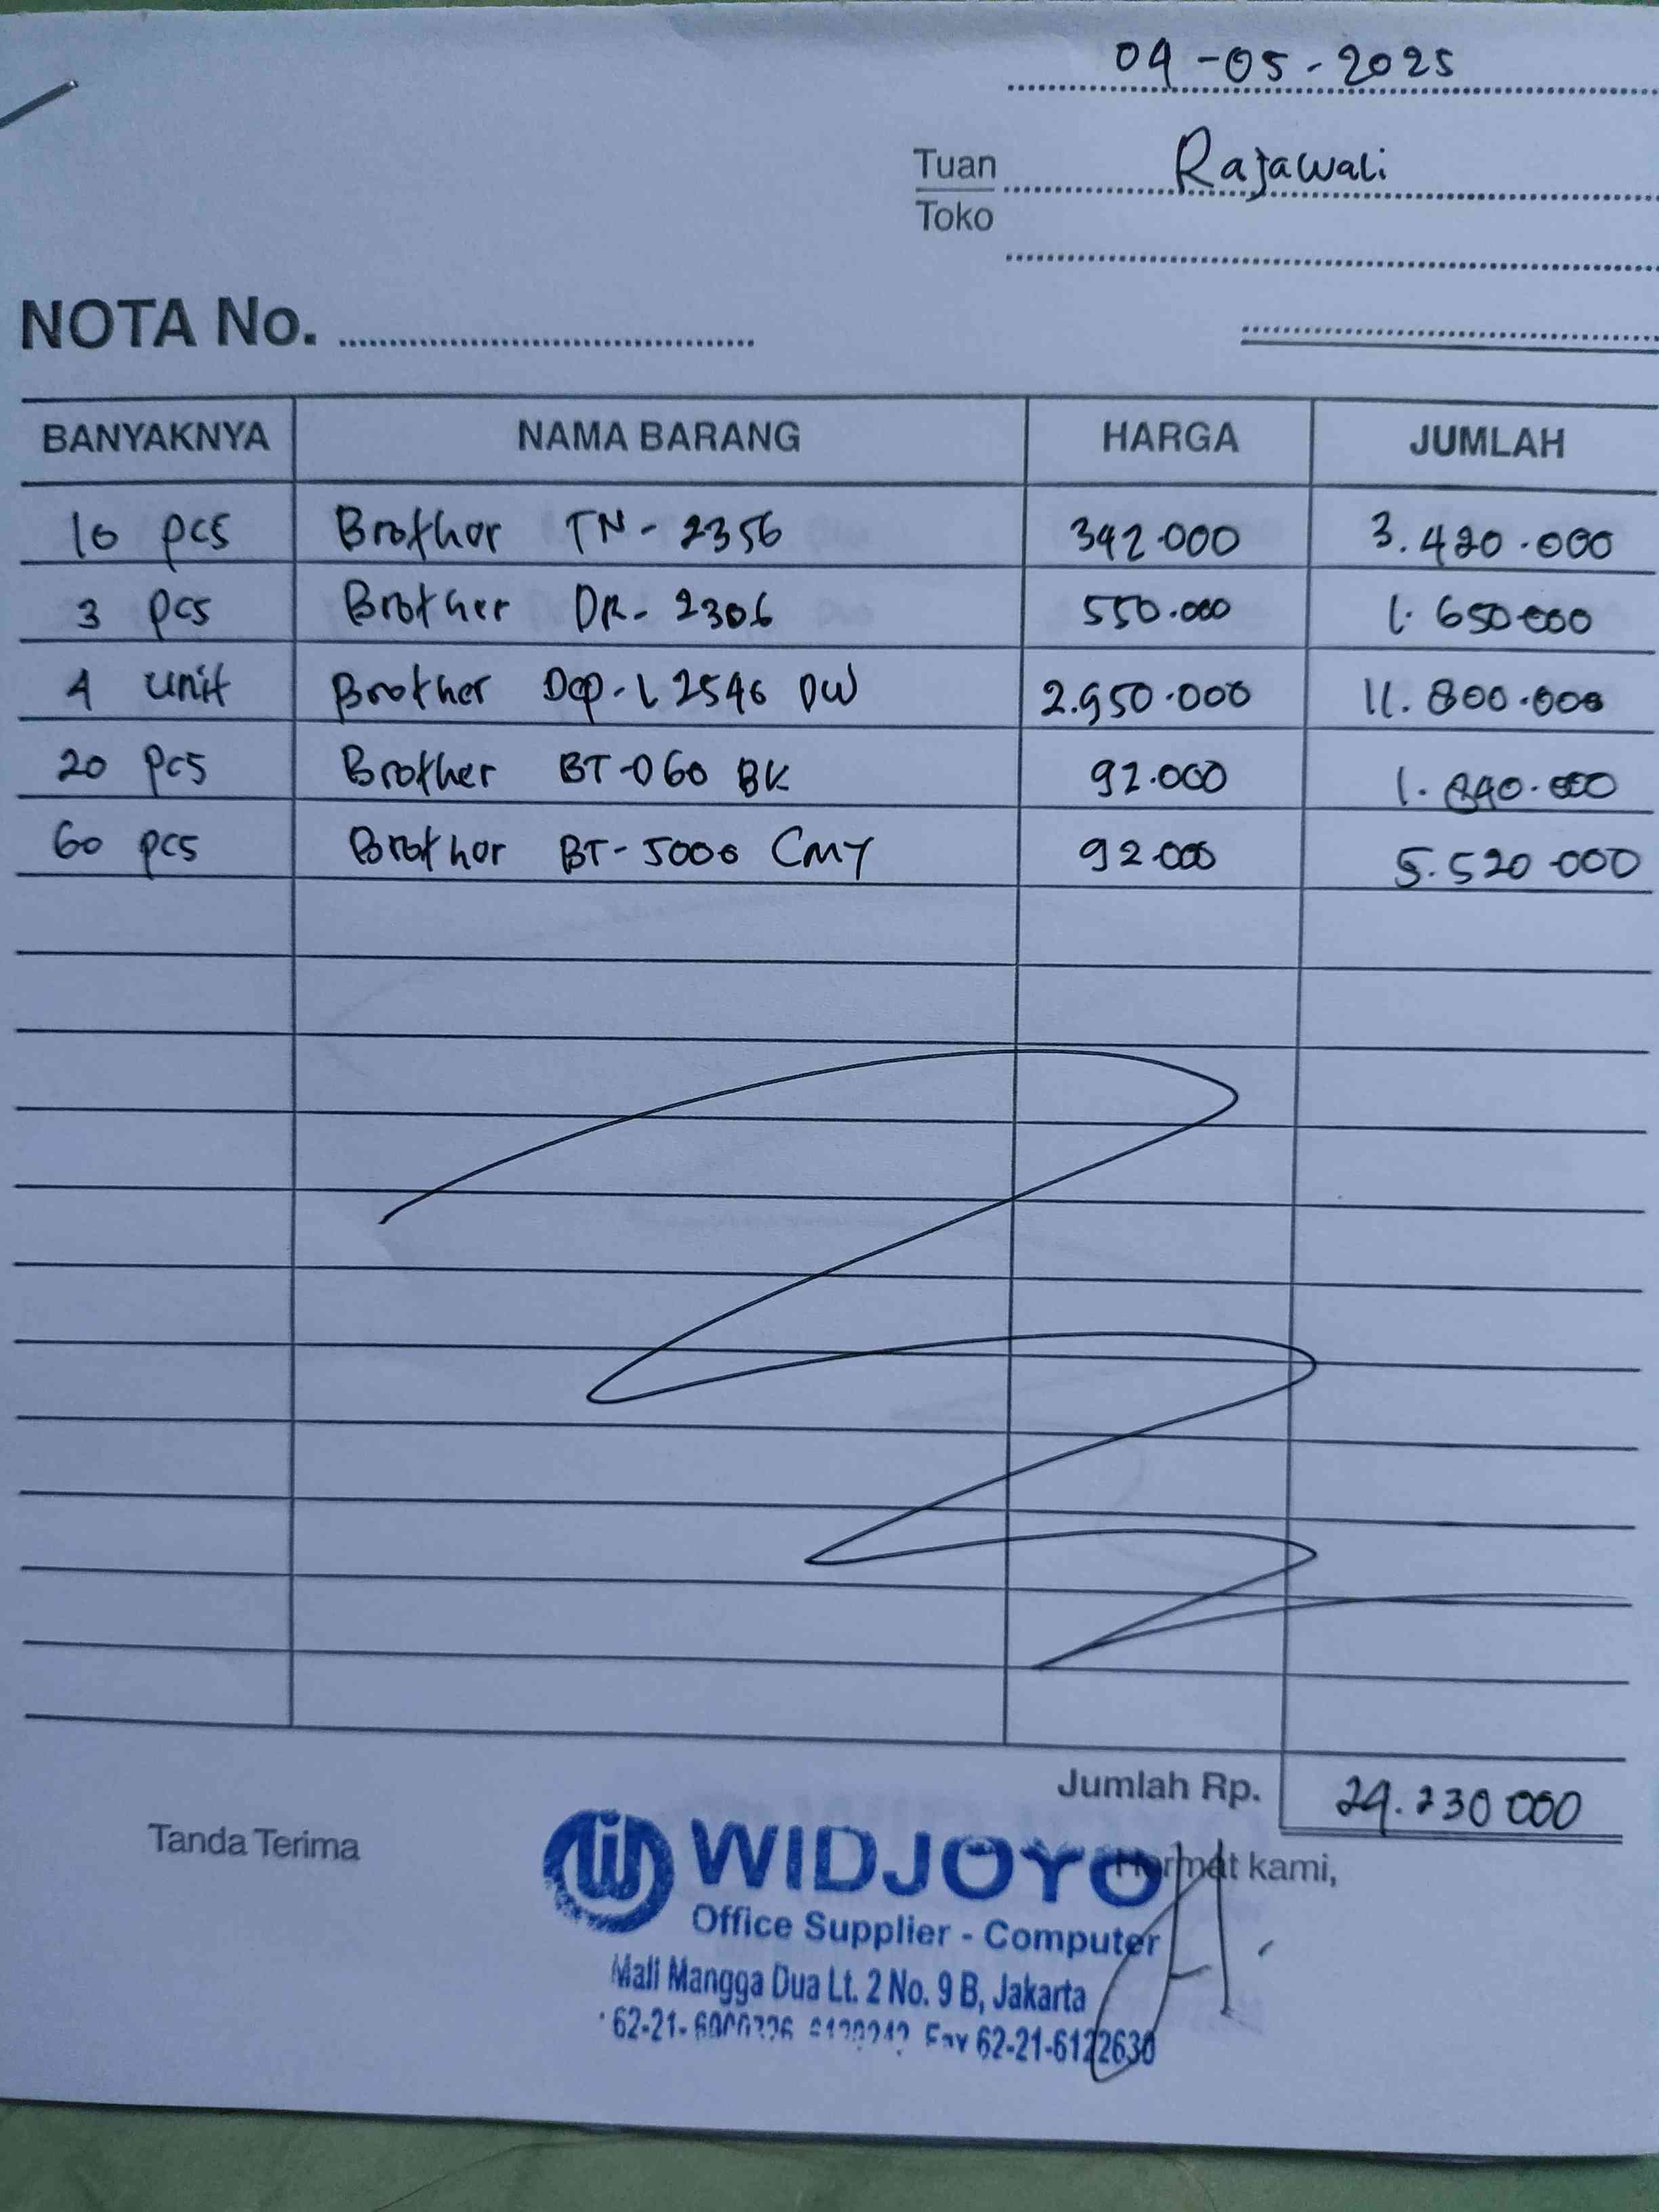 04-05-2025
Tuan Rajawali
Toko
NOTA No.
BANYAKNYA NAMA BARANG HARGA JUMLAH
10 pcs Brother TN-2356 342.000 3.420.000
3 pcs Brother DR-2306 550.000 1.650.000
4 unit Brother Dcp-L2546 DW 2.950.000 11.800.000
20 pcs Brother BT-D60 BK 92.000 1.840.000
60 pcs Brother BT-5000 CMY 92.000 5.520.000
Jumlah Rp. 24.230.000
Tanda Terima
Hormat kami,
WIDJOYO
Office Supplier - Computer
Mall Mangga Dua Lt. 2 No. 9 B, Jakarta
62-21- Fax 62-21-6122630